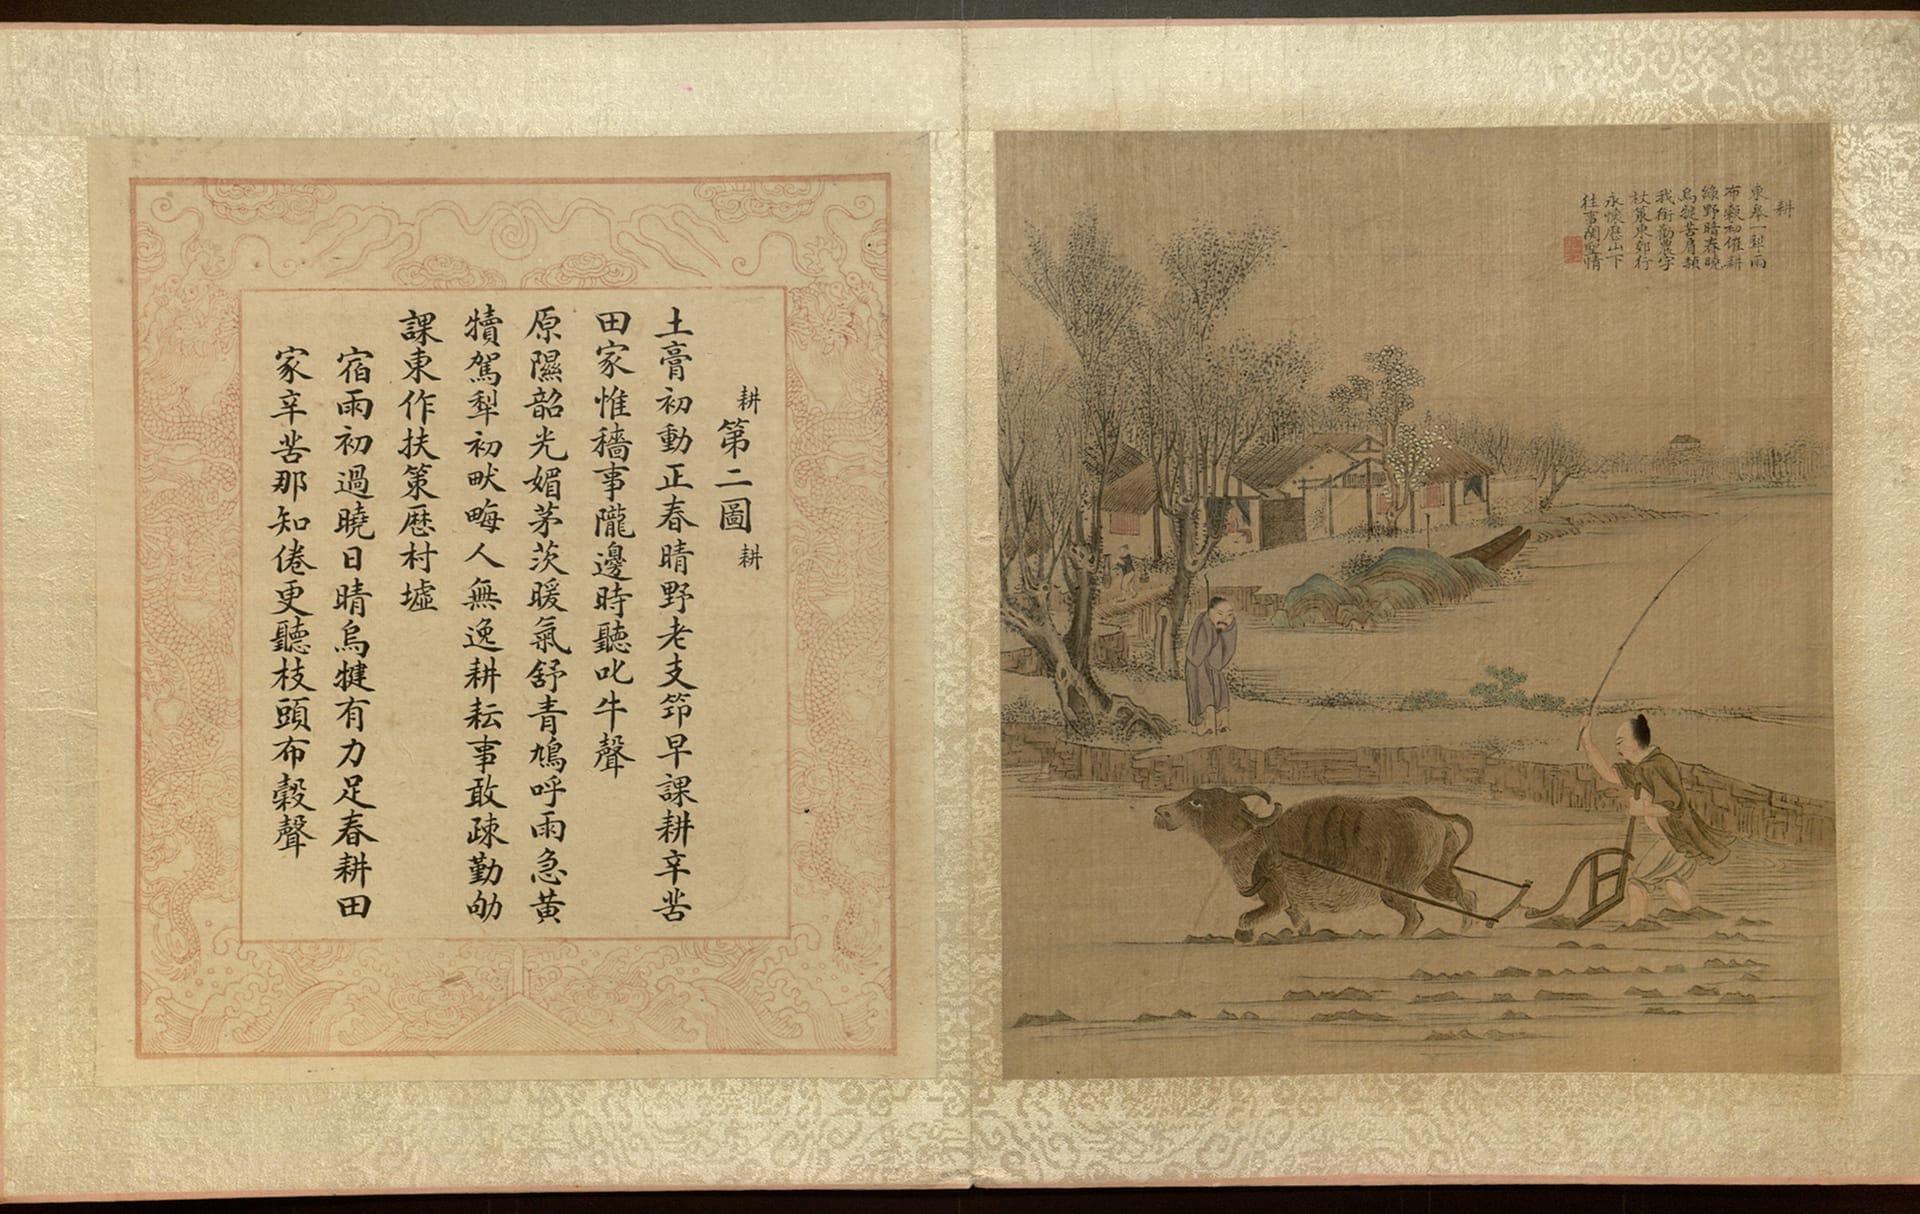 耕第二圖耕
土膏初動正春晴野老支笻早課耕辛苦
田家惟穡事隴邊時聽叱牛聲
原隰韶光媚茅茨暖氣舒青鳩呼雨急黃
犢駕犁初畎畮人無逸耕耘事敢疎勤劬
課東作扶策歷村墟
宿雨初過曉日晴烏犍有力足春耕田
家辛苦那知倦更聽枝頭布穀聲
耕
東皋一犁雨
布穀初催耕
綠野暗春曉
烏犍苦肩赬
我銜勸農字
杖策東郊行
永懷歷山下
往事關聖情